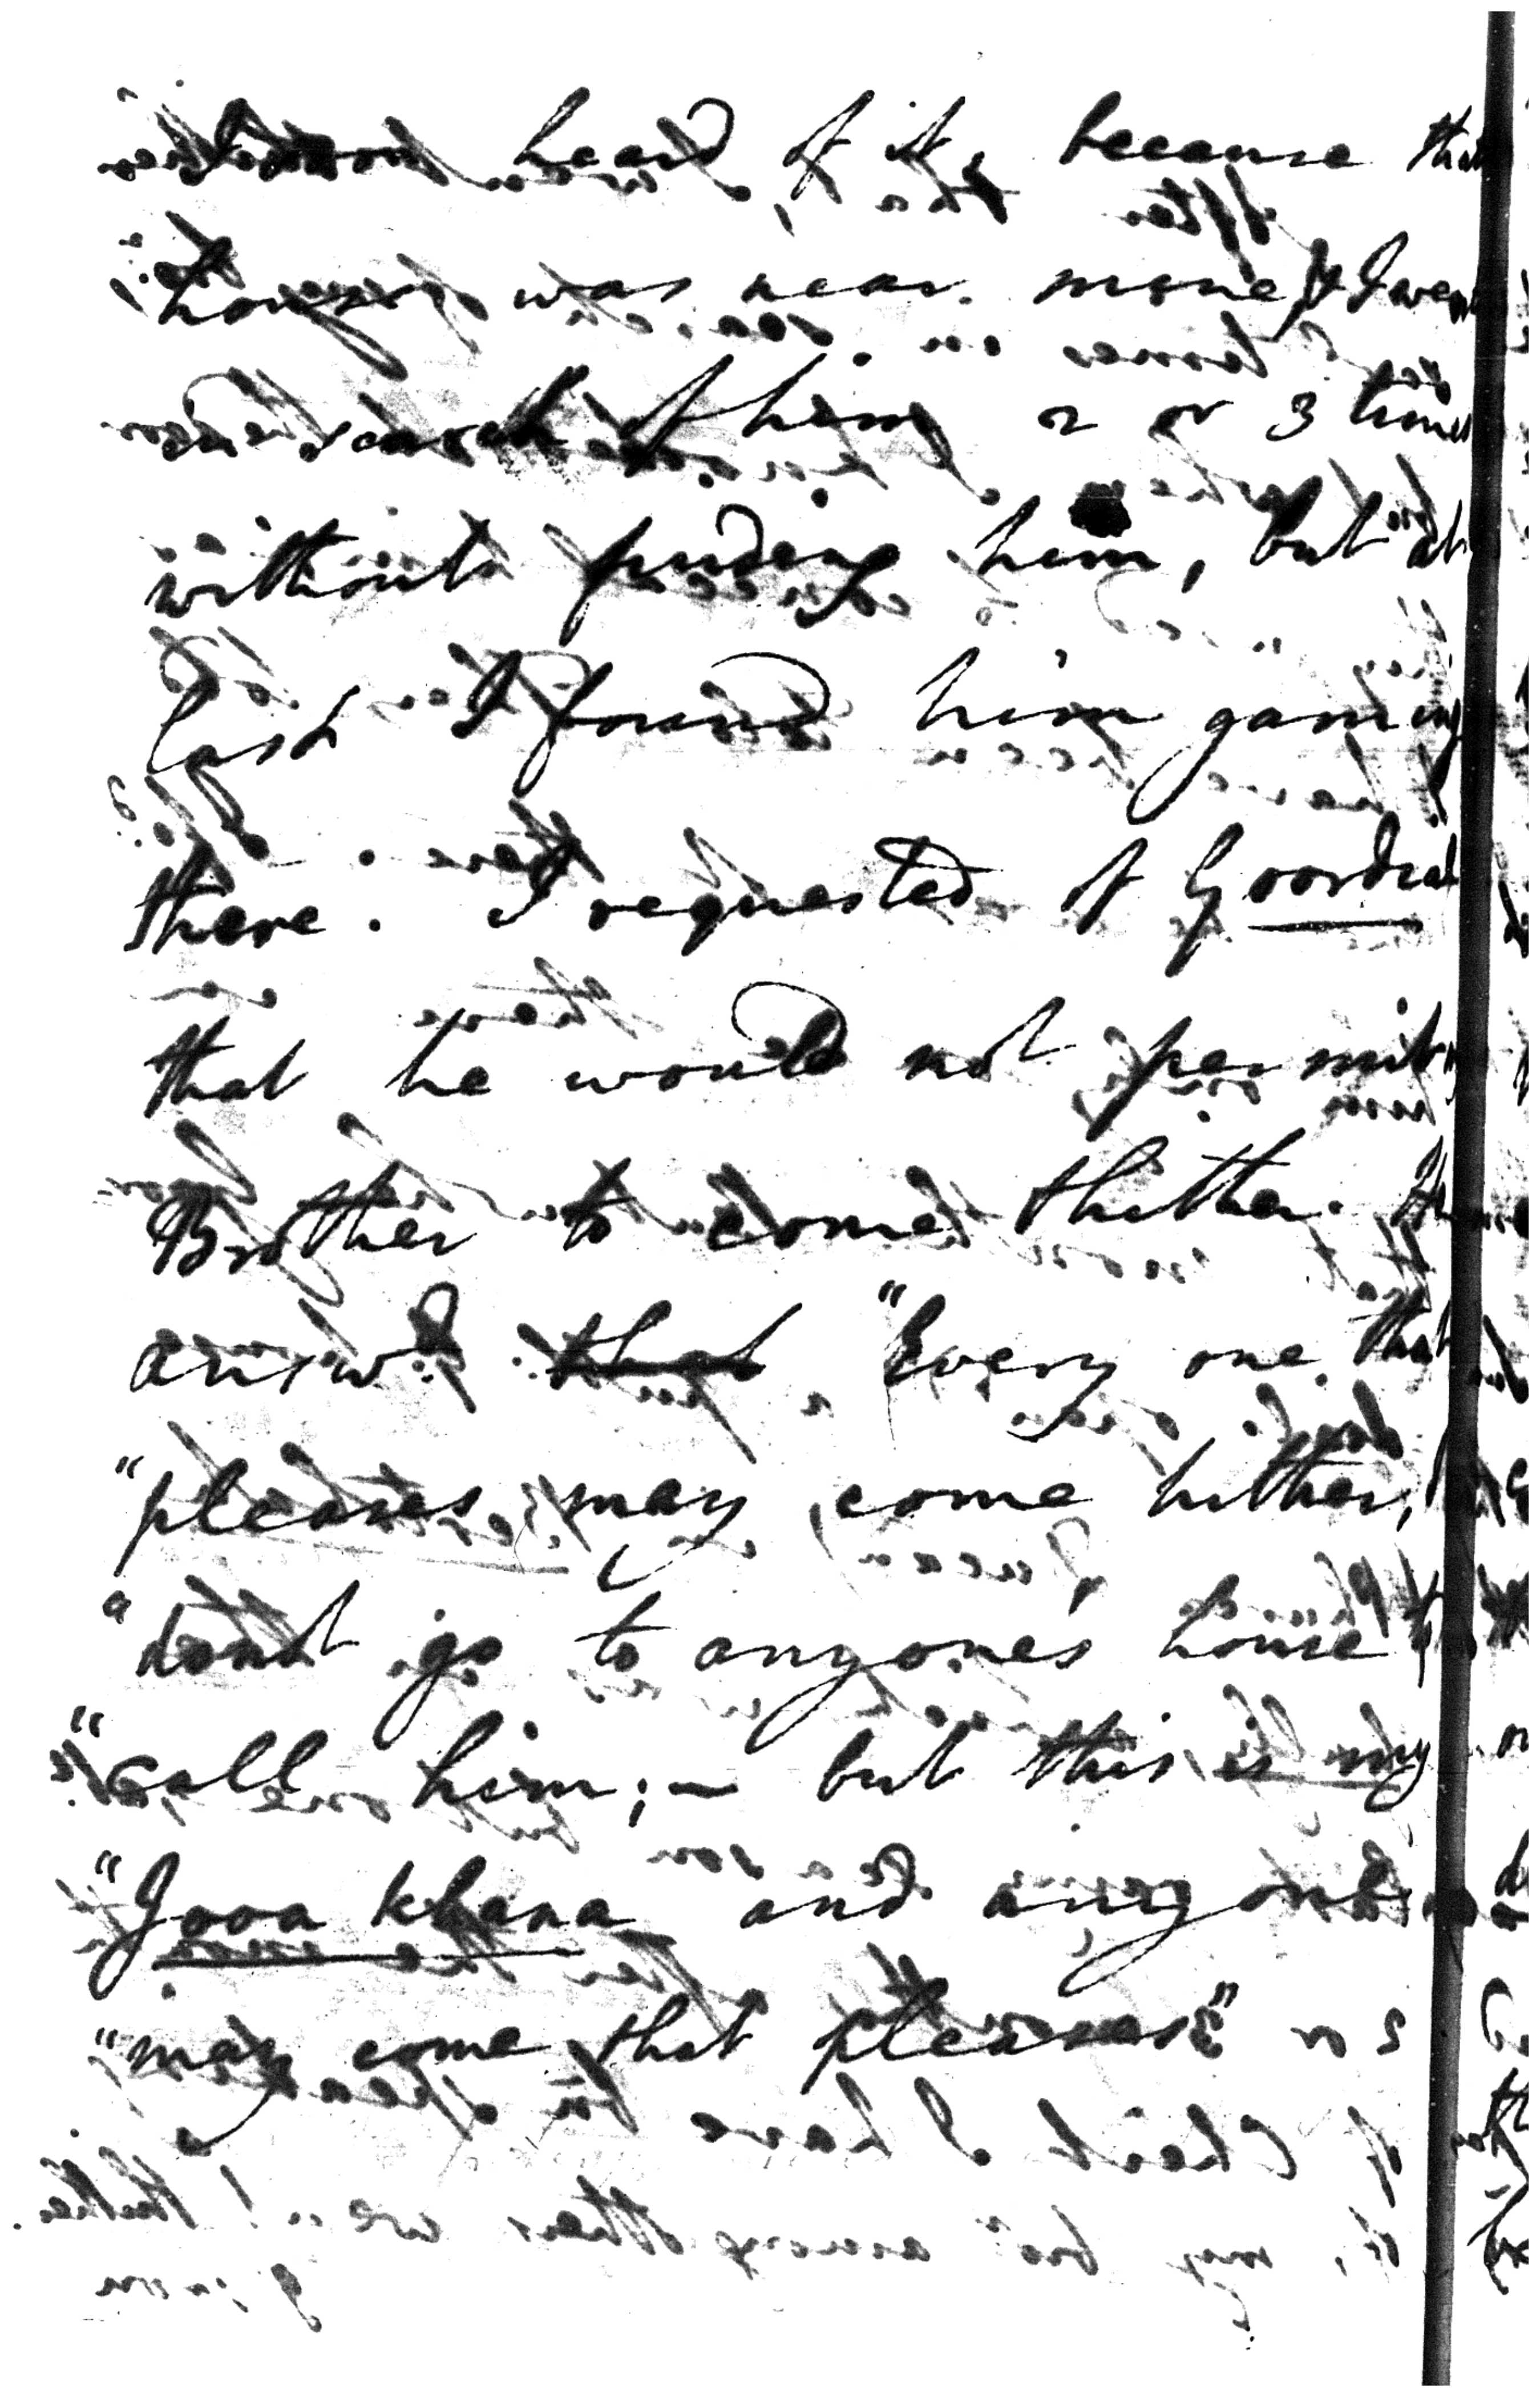 heard of it, because that
house was near mine & I went
in search of him 2 or 3 times
without finding him, but at
last I found him gaming
there. I requested of Goordial
that he would not permit my
Brother to come thither. He
answd that "Every one that
"pleases may come hither, I
"dont go to anyones house to
"call him; — but this is my
"Jooa khana and anyone
"may come that pleases"